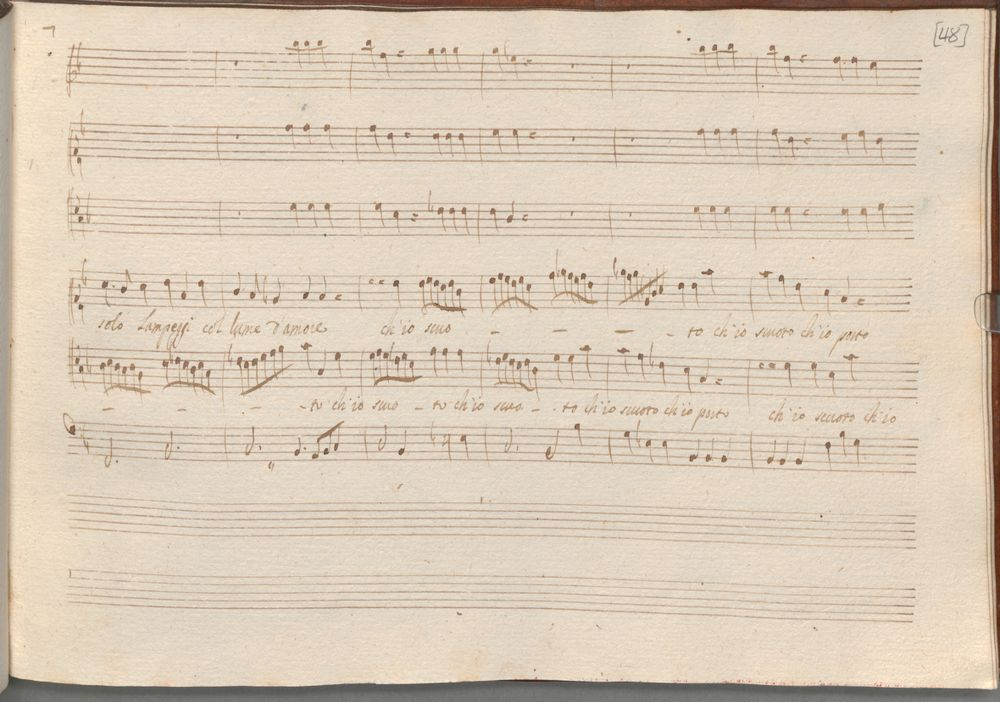 [48]
solo Lampeggi col lume d'amore ch'io scuo - - - - to ch'io scuoto ch'io porto
- - - - to ch'io scuo - to ch'io scuo - - to ch'io scuoto ch'io porto ch'io scuoto ch'io